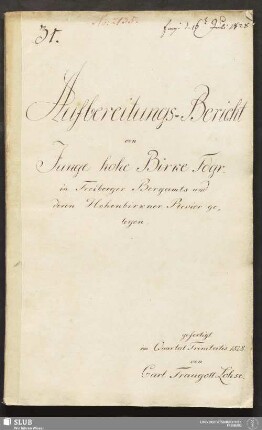 31.
Aufbereitungs-Bericht
von
Junge hohe Birke Fdgr.
in Freiberger Bergamts und
deren Hohenbirkner Revier ge-
legen.
gefertigt
im Quartal Trinitatis 1828.
von
Carl Traugott Lohse.
SLUB